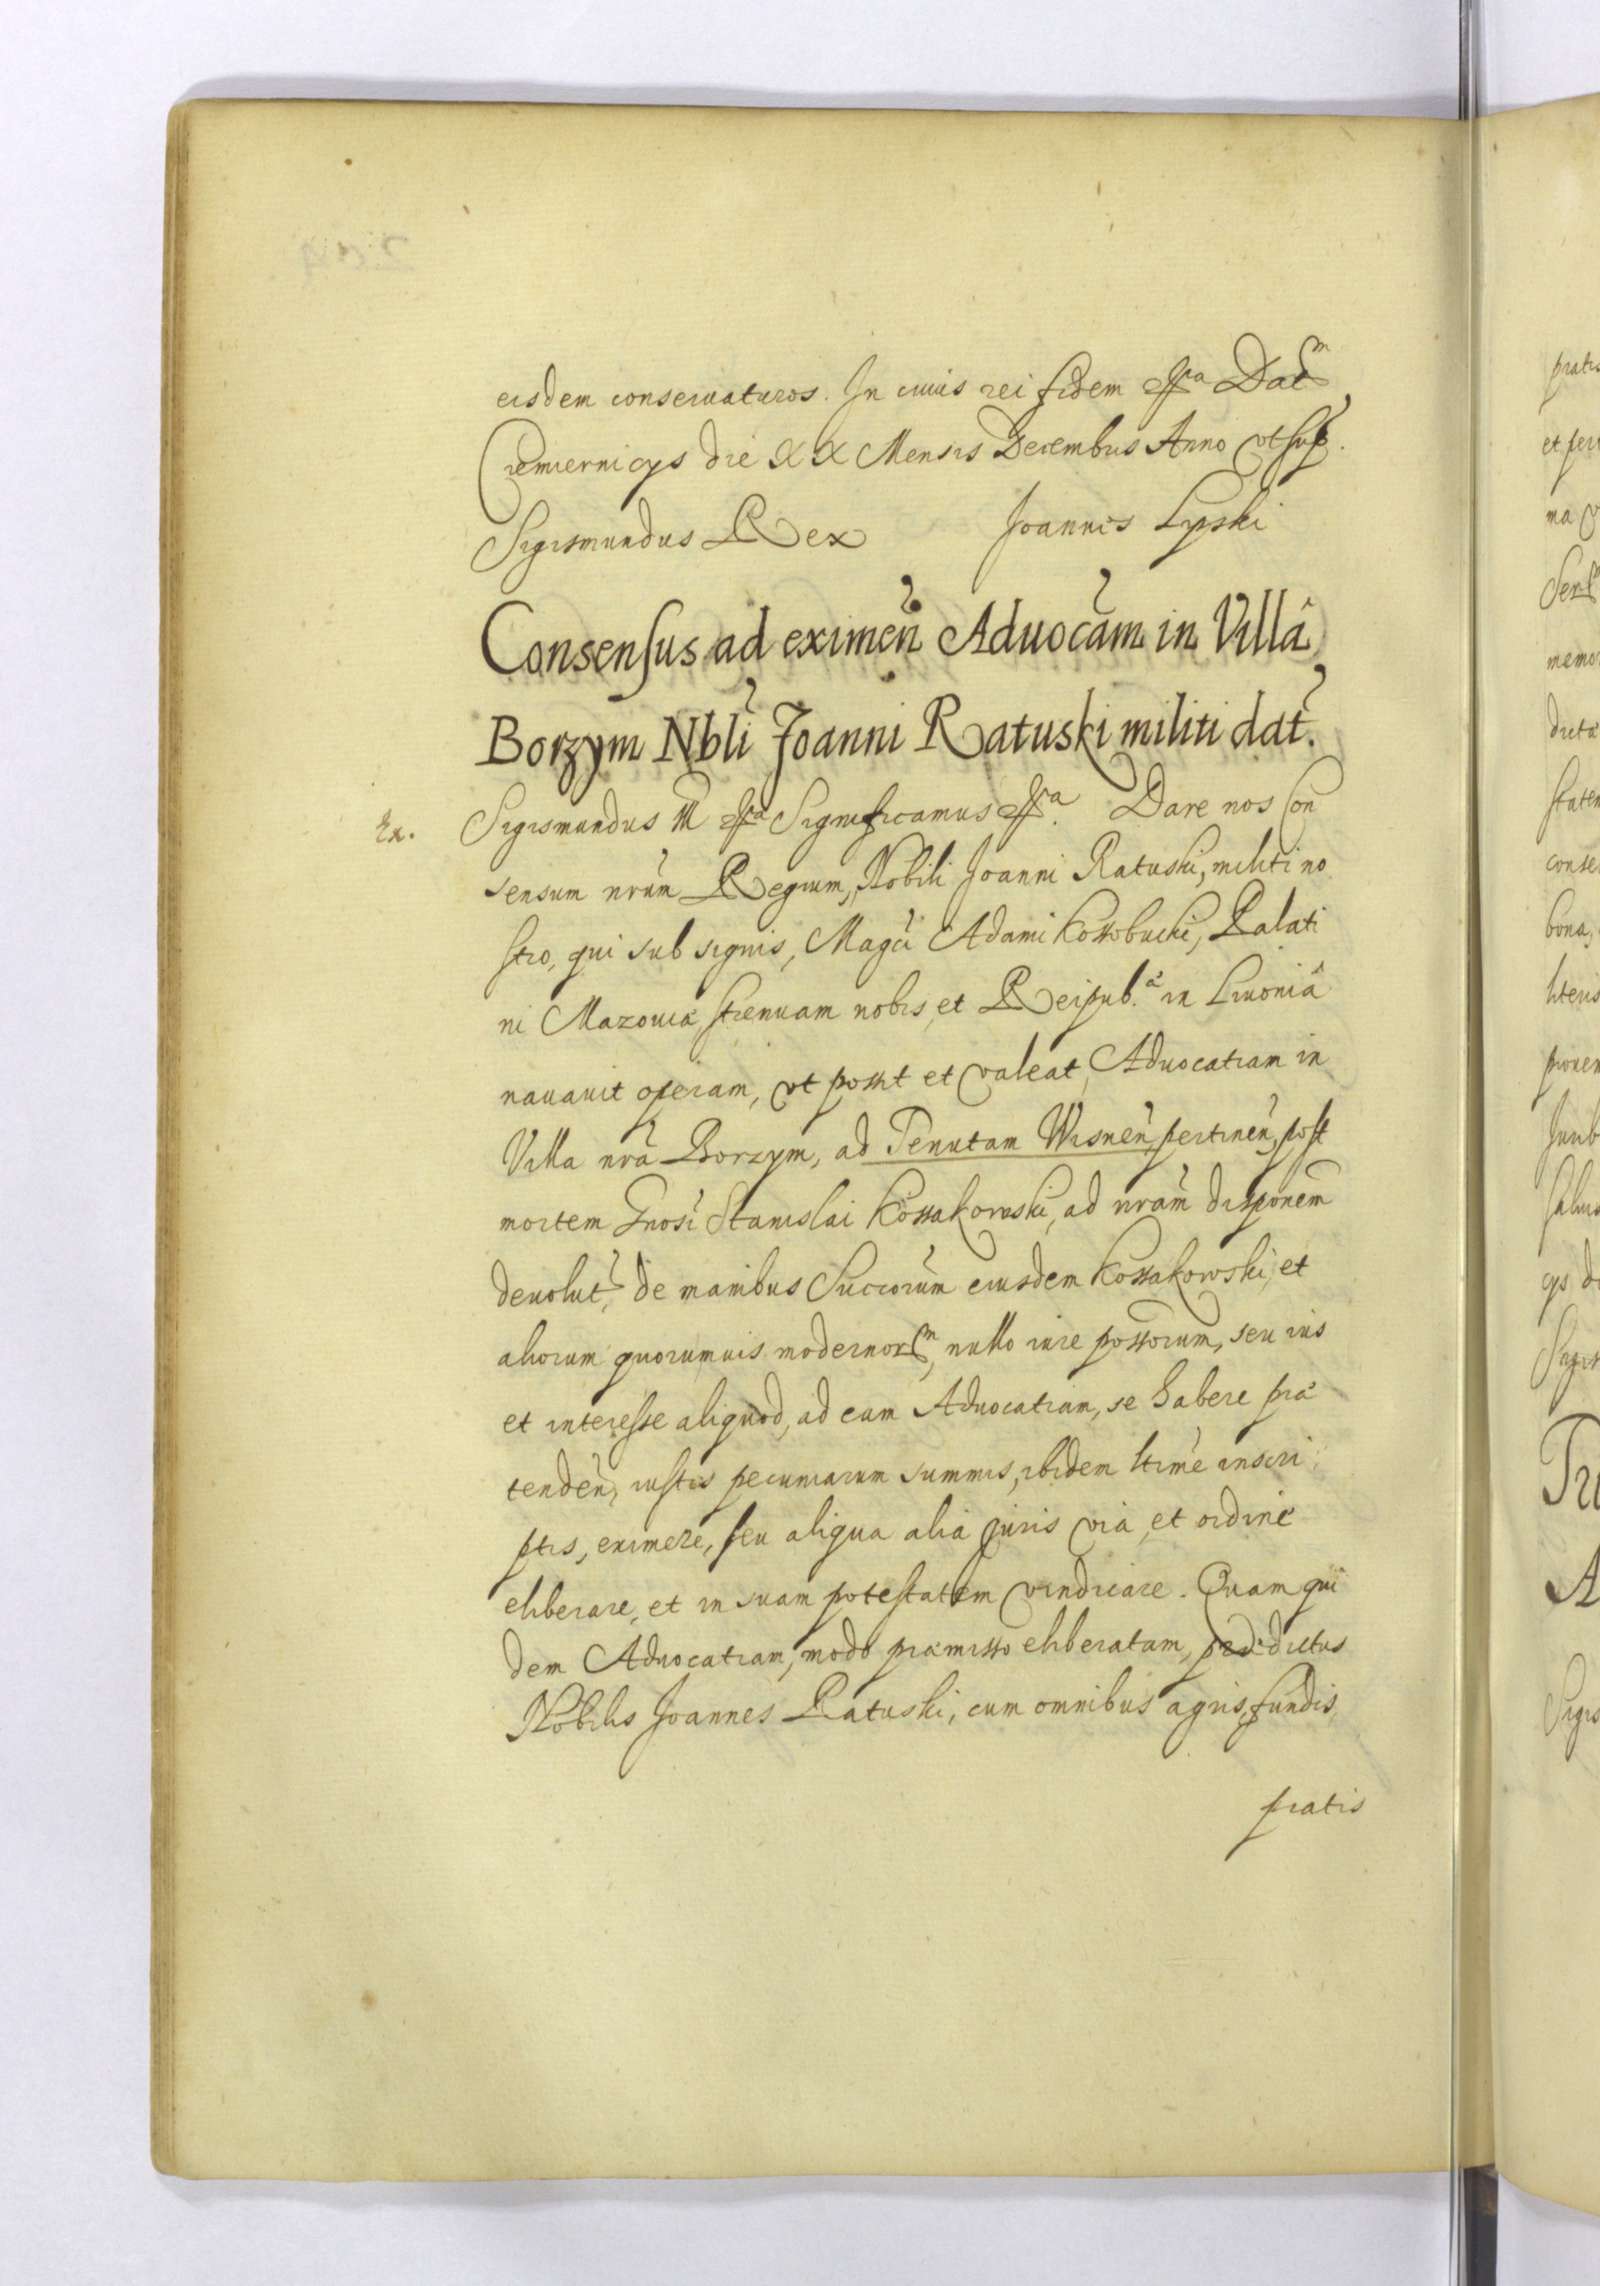 eisdem conseruaturos. In cuius rei fidem &ca Datm
Cremiernicys die XX Mensis Decembris Anno vt sup.
Sigismundus Rex Joannes Lypski
Consensus ad eximeñ Aduocãm in Villâ
Borzym Nbli Joanni Ratuski militi dat.
Ex. Sigismundus III &ca Significamus &ca. Dare nos Con
sensum nrũm Regium, Nobili Joanni Ratuski, militi no
stro, qui sub signis, Magci Adami Kossobucki, Palati
ni Mazouiæ, strenuam nobis, et Reipub.æ in Liuoniâ
nauauit operam, vt possit et valeat, Aduocatiam in
Villa nrã Borzym, ad Tenutam Wisneñ, pertineñ, post
mortem Gnosi Stanislai Kossakowski, ad nrãm disponem
deuolut, de manibus Succorũm eiusdem Kossakowski, et
aliorum quorumuis modernorm, nullo iure possorum, seu ius
et interesse aliquod, ad eam Aduocatiam, se habere præ
tendeñ, iustis pecuniarum summis, ibidem ltime inscri
ptis, eximere, seu aliqua alia juris via, et ordine
eliberare, et in suam potestatem vindicare. Quam qui
dem Aduocatiam, modo præmisso eliberatam, prædictus
Nobilis Joannes Ratuski, cum omnibus agris, fundis,
pratis